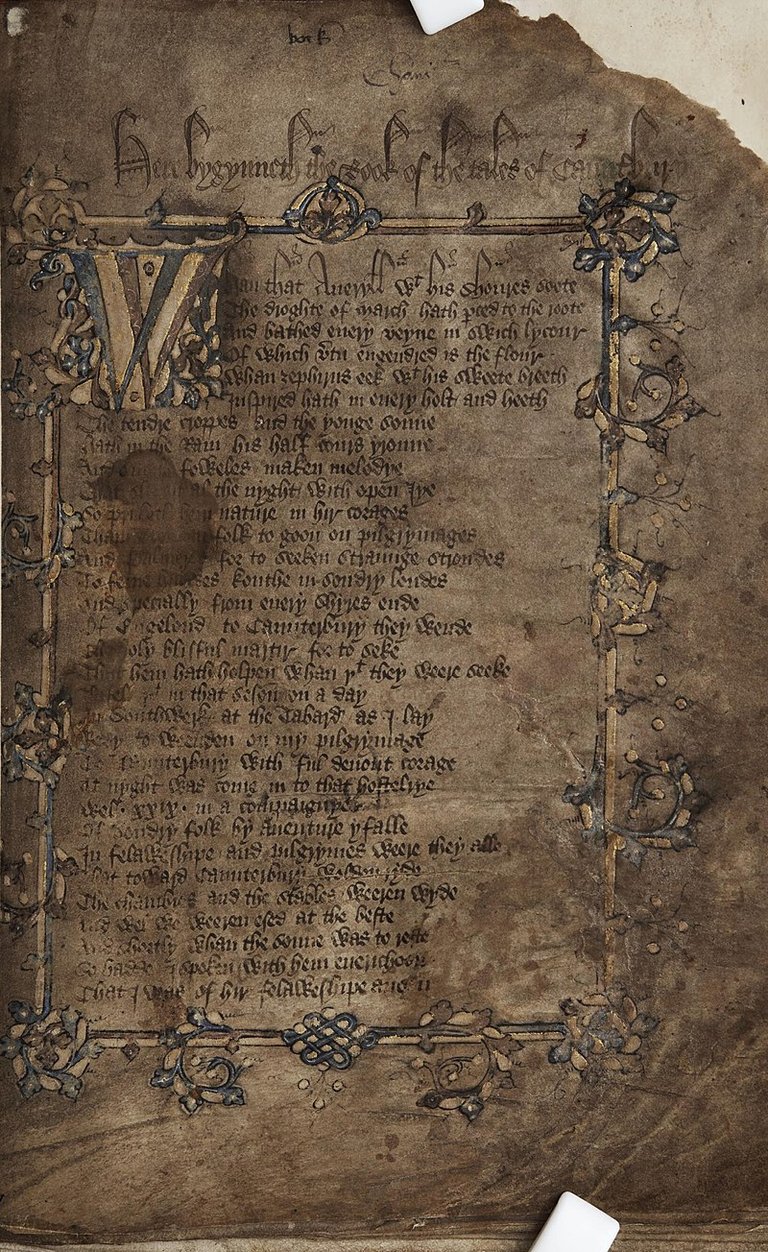 Here bygynneth the Book of the tales of Caunterbury
Whan that Aueryll wt his shoures soote
The droghte of march hath pced to the roote
And bathed euery veyne in swich lycour
Of which vtu engendred is the flour
Whan zephirus eek wt his sweete breeth
Inspired hath in euery holt and heeth
The tendre croppes and the yonge sonne
Hath in the Ram his half cours yronne
And foweles maken melodye
That al the nyght with open Iye
So priketh hem nature in hir corages
folk to goon on pilgrymages
And for to seeken straunge strondes
To ferne halwes kouthe in sondry londes
And specially from euery shyres ende
Of Engelond to Caunterbury they wende
The holy blisful martir for to seke
That hem hath holpen whan þt they weere seeke
in that seson on a day
In Southwerk at the Tabard as I lay
Redy to weenden on my pilgrymage
To Caunterbury with ful deuout corage
At nyght was come in to that hostelrye
Wel .xxix. in a compaignye
Of sondry folk by auenture yfalle
In felaweshipe and pilgrymes weere they alle
That toward Caunterbury wolden ryde
The chambres and the stables weeren wyde
And wel we weeren esed at the beste
And shortly whan the sonne was to reste
So hadde I spoken with hem euerichoon
That I was of hir felaweshipe anon